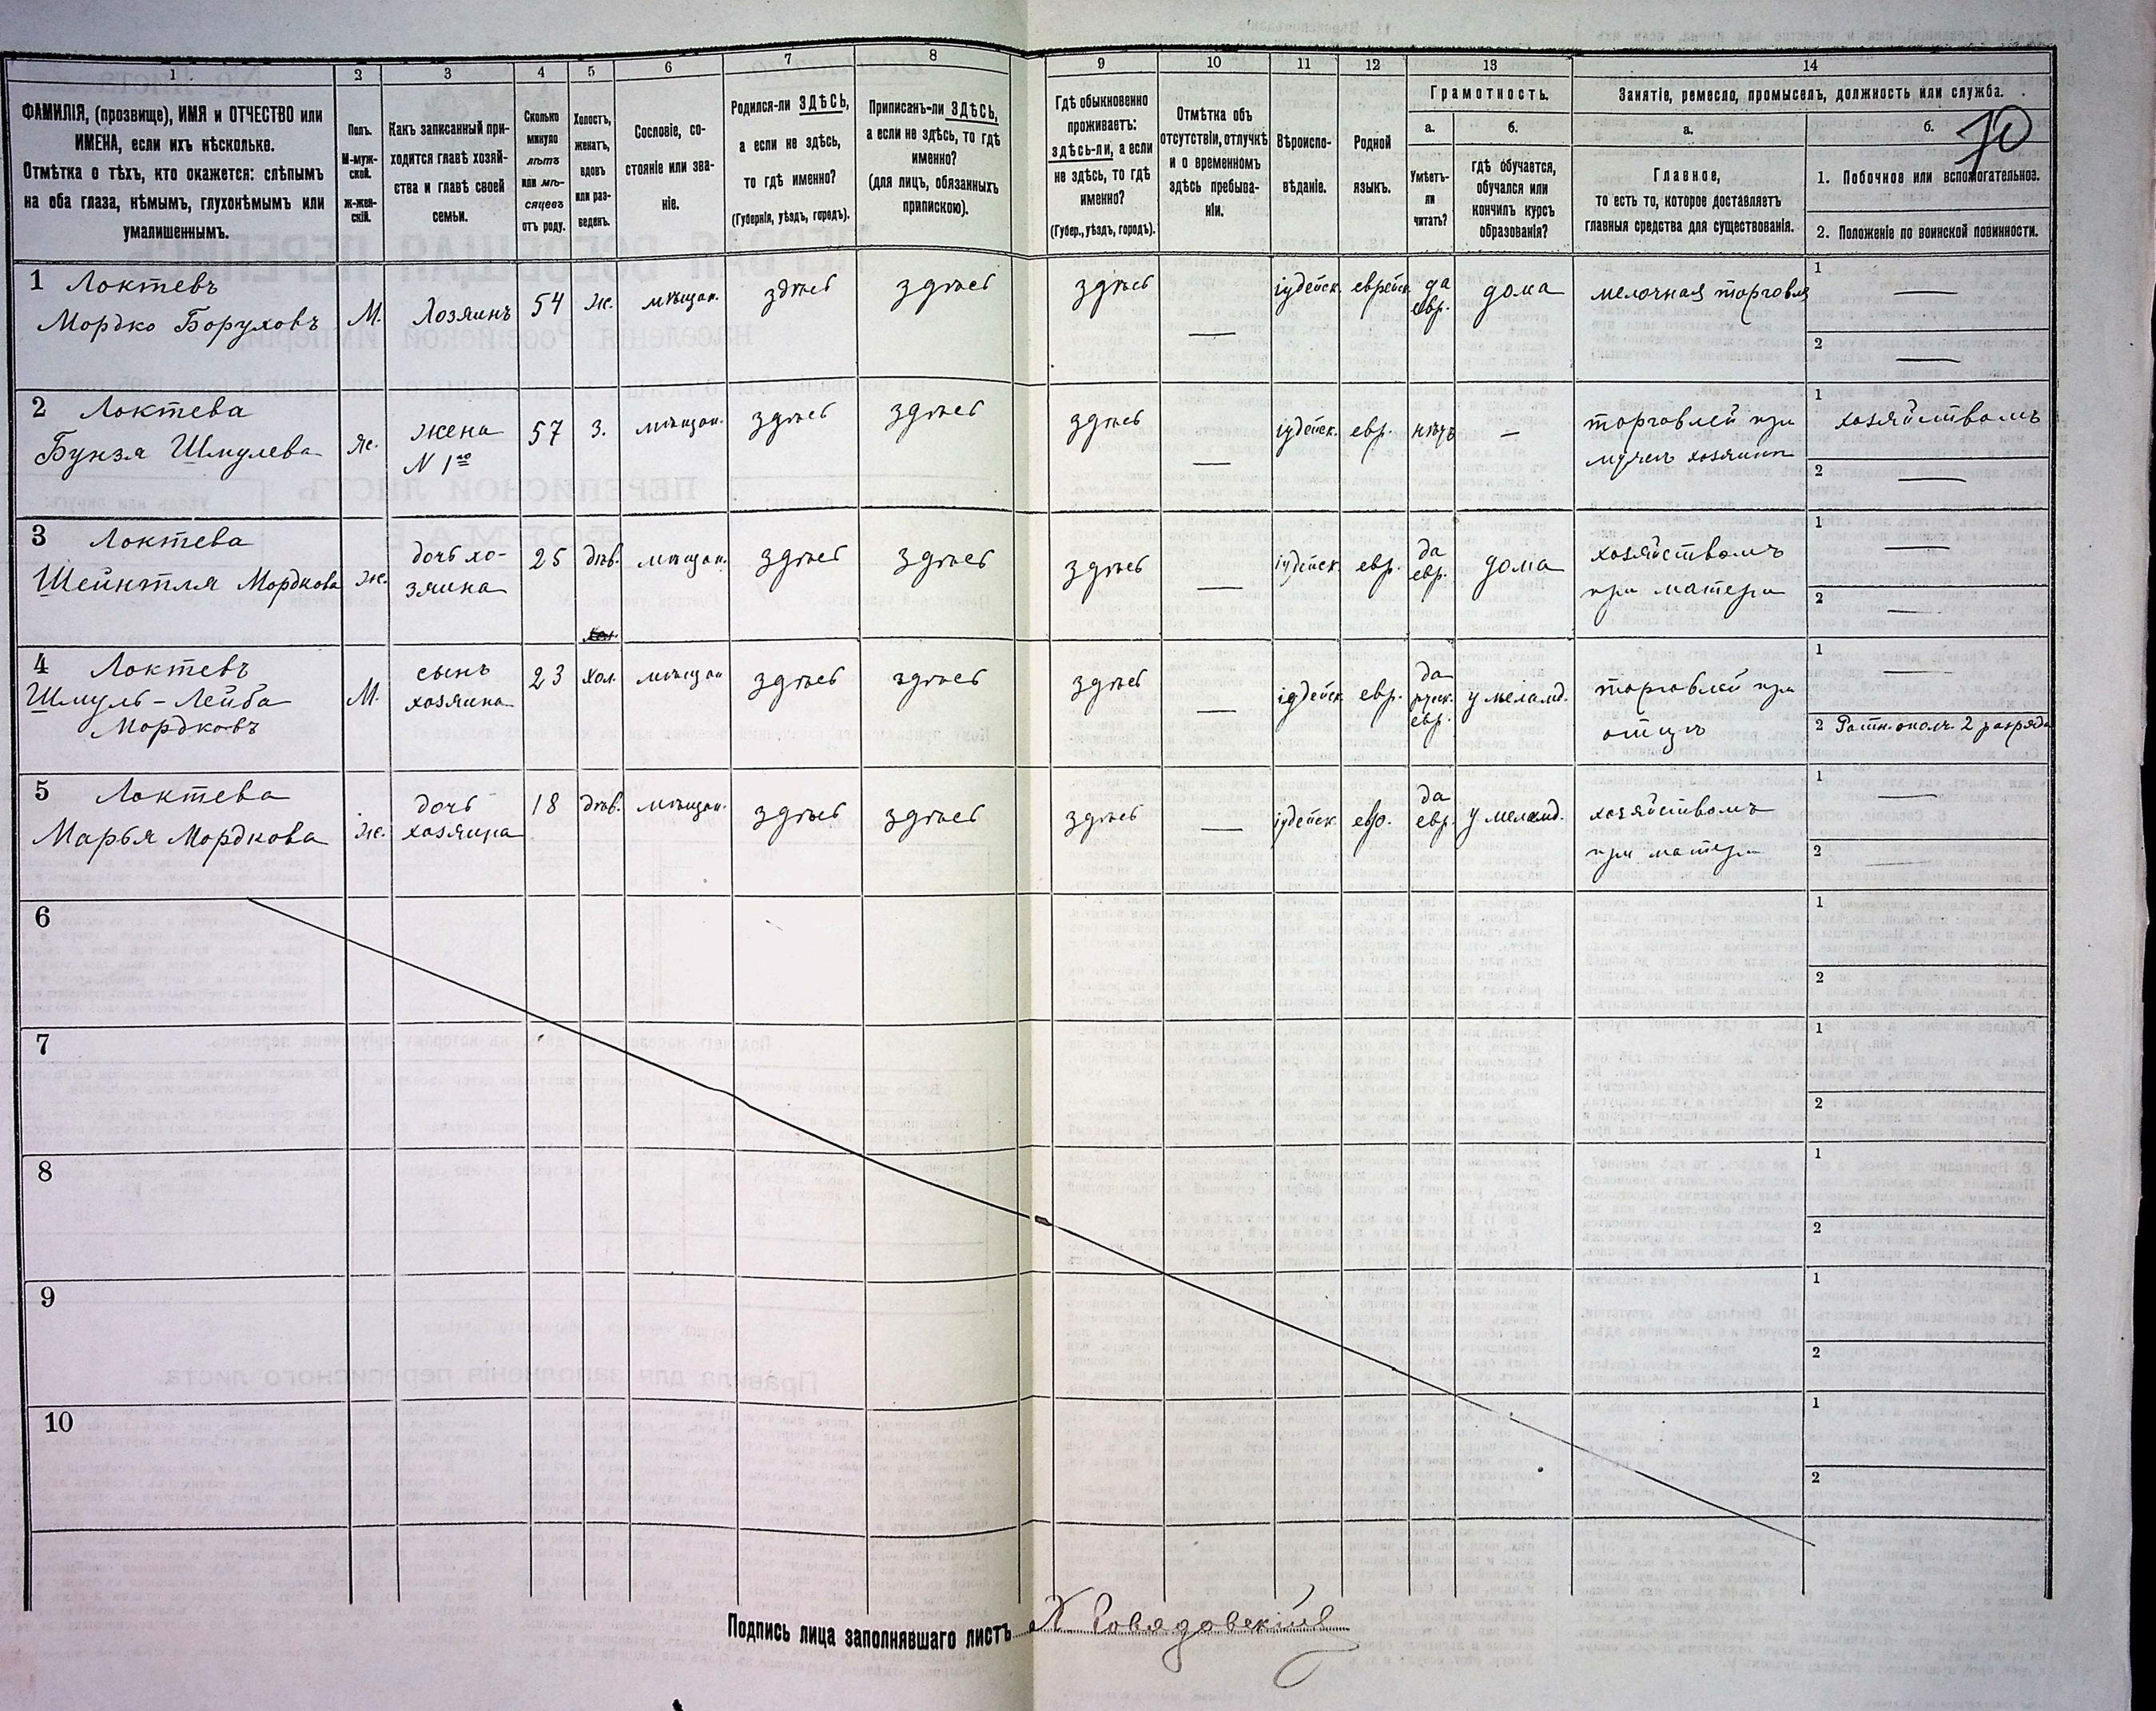 1 2 3 4 5 6 7 8 9 10 11 12 13 14
ФАМИЛІЯ, (прозвище), ИМЯ и ОТЧЕСТВО или
ИМЕНА, если ихъ нѣсколько.
Отмѣтка о тѣхъ, кто окажется: слѣпымъ
на оба глаза, нѣмымъ, глухонѣмымъ или
умалишеннымъ.
Полъ.
М-муж-
ской.
ж-жен-
скій.
Какъ записанный при-
ходится главѣ хозяй-
ства и главѣ своей
семьи.
Сколько
минуло
лѣтъ
или мѣ-
сяцевъ
отъ роду.
Холостъ,
женатъ,
вдовъ
или раз-
веденъ.
Сословіе, со-
стояніе или зва-
ніе.
Родился-ли ЗДѢСЬ,
а если не здѣсь,
то гдѣ именно?
(Губернія, уѣздъ, городъ).
Приписанъ-ли ЗДѢСЬ,
а если не здѣсь, то гдѣ
именно?
(для лицъ, обязанныхъ
припискою).
Гдѣ обыкновенно
проживаетъ:
здѣсь-ли, а если
не здѣсь, то гдѣ
именно?
(Губер., уѣздъ, городъ).
Отмѣтка объ
отсутствіи, отлучкѣ
и о временномъ
здѣсь пребыва-
ніи.
Вѣроиспо-
вѣданіе.
Родной
языкъ.
Грамотность.
а.
Умѣетъ-
ли
читать?
б.
гдѣ обучается,
обучался или
кончилъ курсъ
образованія?
Занятіе, ремесло, промыселъ, должность или служба.
а.
Главное,
то есть то, которое доставляетъ
главныя средства для существованія.
б.
10
1. Побочное или вспомогательное.
2. Положеніе по воинской повинности.
1 Локтевъ
Мордко Боруховъ
М.
Хозяинъ
54
ж.
мѣщан.
здѣсь
здѣсь
здѣсь
—
іудейск.
еврейск.
да
евр.
дома
мелочная торговля
1 —
2 —
2 Локтева
Бунзя Шмулева
ж.
жена
N 1го
57
з.
мѣщан.
здѣсь
здѣсь
здѣсь
—
іудейск.
евр.
нѣтъ
—
торговлей при
мужѣ хозяинѣ
1 хозяйствомъ
2 —
3 Локтева
Шейнтля Мордкова
ж.
дочь хо-
зяина
25
дѣв.
мѣщан.
здѣсь
здѣсь
здѣсь
—
іудейск.
евр.
да
евр.
дома
хозяйствомъ
при матери
1 —
2 —
4 Локтевъ
Шмуль-Лейба
Мордковъ
М.
сынъ
хозяина
23
хол.
мѣщан
здѣсь
здѣсь
здѣсь
—
іудейск
евр.
да
русск.
евр.
у меламд.
торговлей при
отцѣ
1 —
2 Ратн. ополч. 2 разряда
5 Локтева
Марья Мордкова
ж.
дочь
хозяина
18
дѣв.
мѣщан.
здѣсь
здѣсь
здѣсь
—
іудейск.
евр.
да
евр.
у меламд.
хозяйствомъ
при матери
1 —
2 —
6
1
2
7
1
2
8
1
2
9
1
2
10
1
2
Подпись лица заполнявшаго листъ